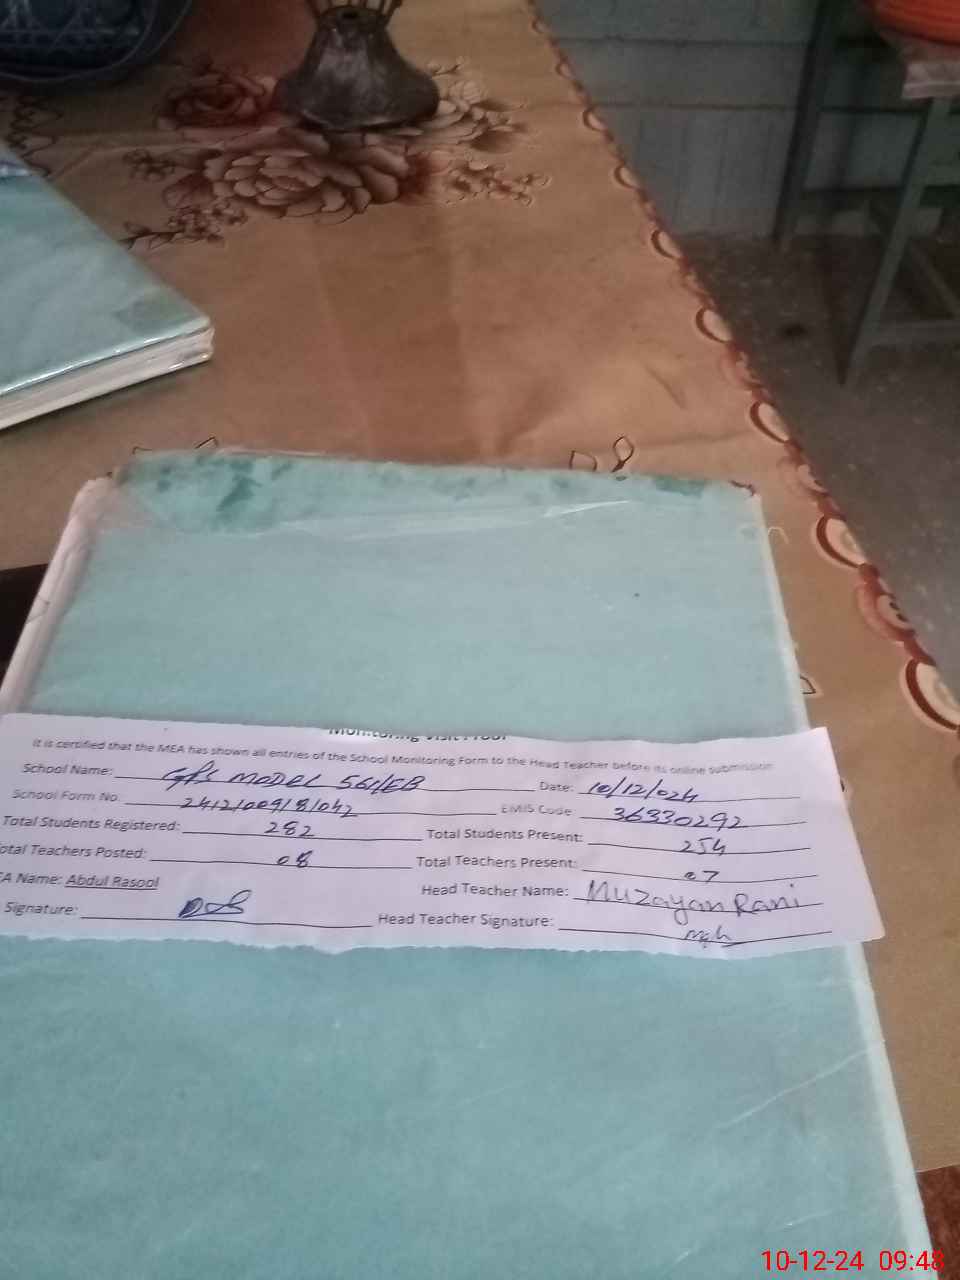 Monitoring Visit Proof
It is certified that the MEA has shown all entries of the School Monitoring Form to the Head Teacher before its online submission
School Name: GPS MODEL 561/EB Date: 10/12/024
School Form No. 2412/009/8/042 EMIS Code 36330292
Total Students Registered: 282 Total Students Present: 254
otal Teachers Posted: 08 Total Teachers Present: 07
EA Name: Abdul Rasool Head Teacher Name: Muzayan Rani
Signature: Head Teacher Signature:
10-12-24 09:48